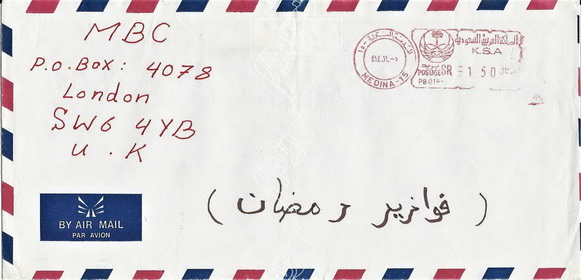 MBC
P.O. Box: 4078
London
SW6 4YB
U.K
المملكة العربية السعودية
K.S.A
POSTAGE SR 1 50
PB 014
MEDINA-15
BY AIR MAIL
PAR AVION
( فوازير رمضان )